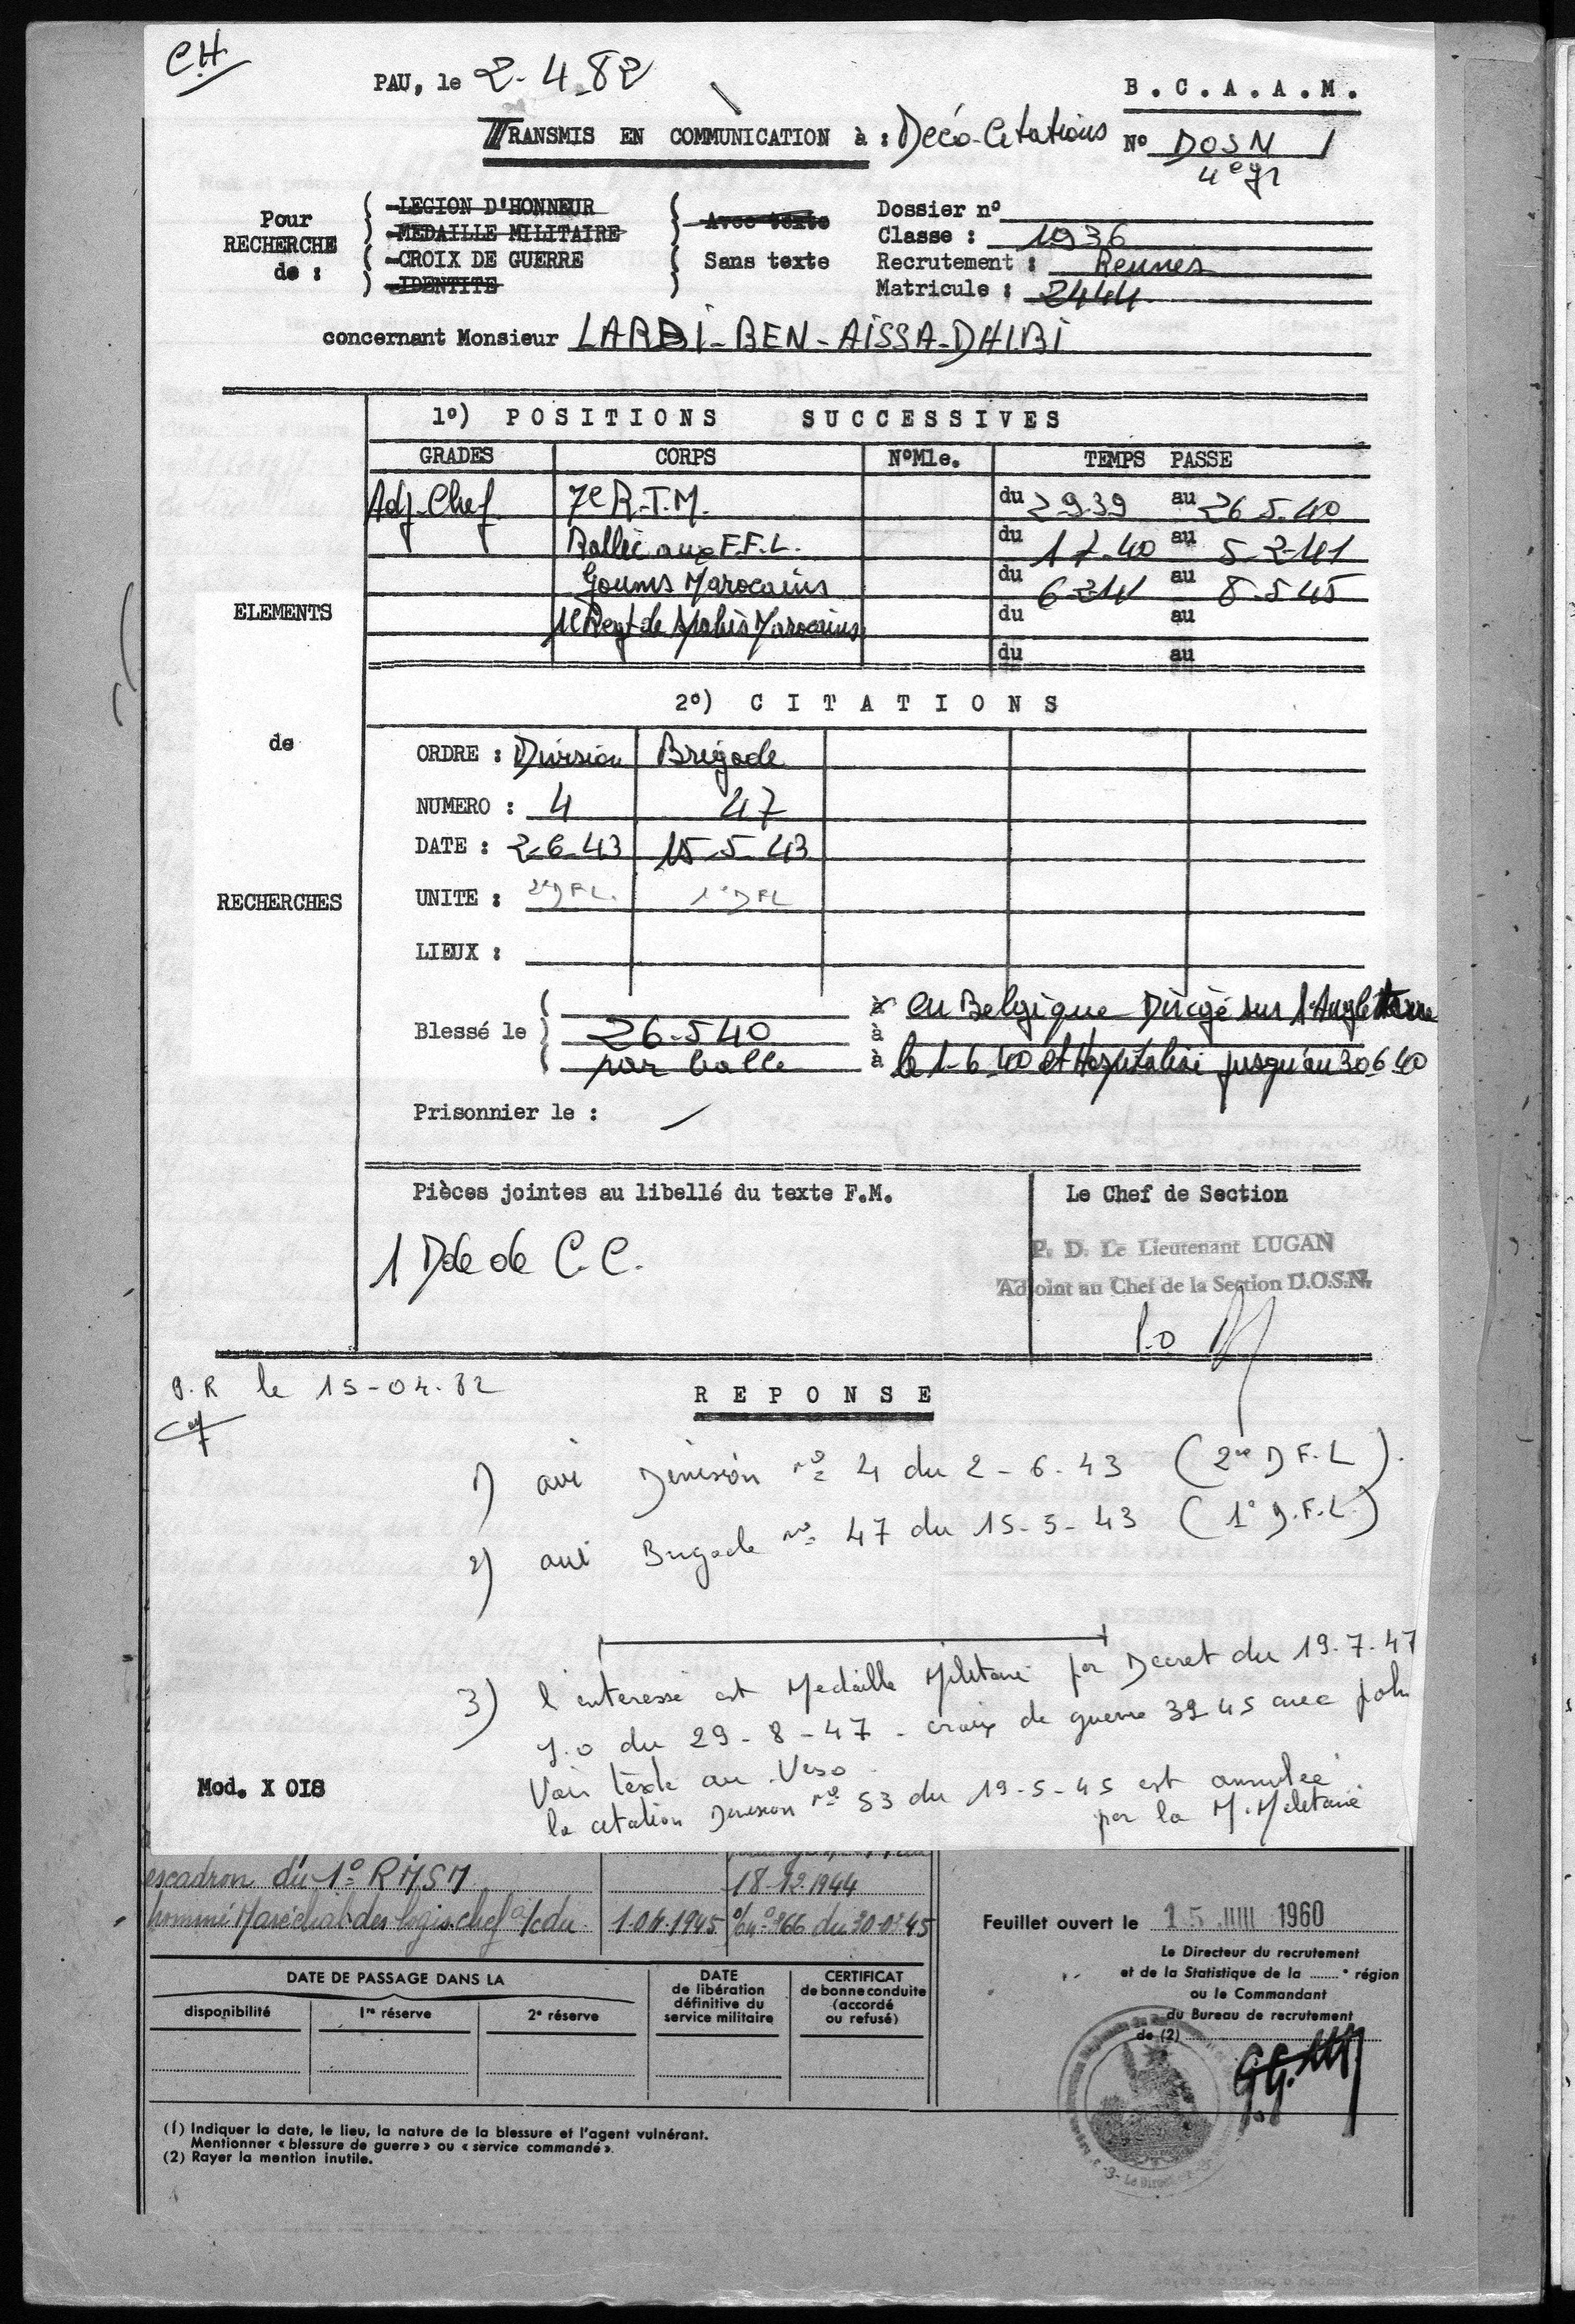 CH
PAU, le 2-4-82
B.C.A.A.M.
TRANSMIS EN COMMUNICATION à : Déco-Citations
N° DOSN /
4e
Pour RECHERCHE de :
-LEGION D'HONNEUR
-MEDAILLE MILITAIRE
-CROIX DE GUERRE
-IDENTITE
Avec texte
Sans texte
Dossier n°
Classe : 1936
Recrutement : Rennes
Matricule : 2444
concernant Monsieur LARBI-BEN-AÏSSA-DHIBI
ELEMENTS
de
RECHERCHES
1°) POSITIONS SUCCESSIVES
GRADES CORPS N°Mle. TEMPS PASSE
Adj-Chef 7e R.T.M. du 2 9 39 au 26 5.40
Rallié aux F.F.L. du 1 7.40 au 5-2-41
Goums Marocains du 6-2 41 au 8-5 45
1e Regt de Spahis Marocains du au
du au
2°) CITATIONS
ORDRE : Division Brigade
NUMERO : 4 47
DATE : 2-6-43 15-5-43
UNITE : 2eDFL. 1eDFL
LIEUX :
Blessé le 26-5 40 à en Belgique Dirigé sur l'Angleterre
à
par balle à le 1-6 40 et Hospitalisé jusqu'au 30 6 40
Prisonnier le : /
Pièces jointes au libellé du texte F.M.
1 Dde de C.C.
Le Chef de Section
P. D. Le Lieutenant LUGAN
Adjoint au Chef de la Section D.O.S.N.
le 15-04-82
REPONSE
1) Division n° 4 du 2-6-43 (2e D F.L).
2) Brigade n° 47 du 15-5-43 (1° D.F.L)
3) l'interesse est Medaille Militaire par Decret du 19.7.47
J.O du 29-8-47 - croix de guerre 39 45 avec palm
Voir texte au Verso
la citation Division n° 53 du 19-5-45 est annulee
par la M. Militaire
Mod. X 018
escadron du 1° RMSM 18-12-1944
nommé Maréchal des logis-chef a/c du 1.04.1945
Feuillet ouvert le 15 JUIN 1960
Le Directeur du recrutement
et de la Statistique de la ....... e région
ou le Commandant
du Bureau de recrutement
de (2)
DATE DE PASSAGE DANS LA
disponibilité
1re réserve
2e réserve
DATE
de libération
définitive du
service militaire
CERTIFICAT
de bonne conduite
(accordé
ou refusé)
(1) Indiquer la date, le lieu, la nature de la blessure et l'agent vulnérant.
Mentionner « blessure de guerre » ou « service commandé ».
(2) Rayer la mention inutile.